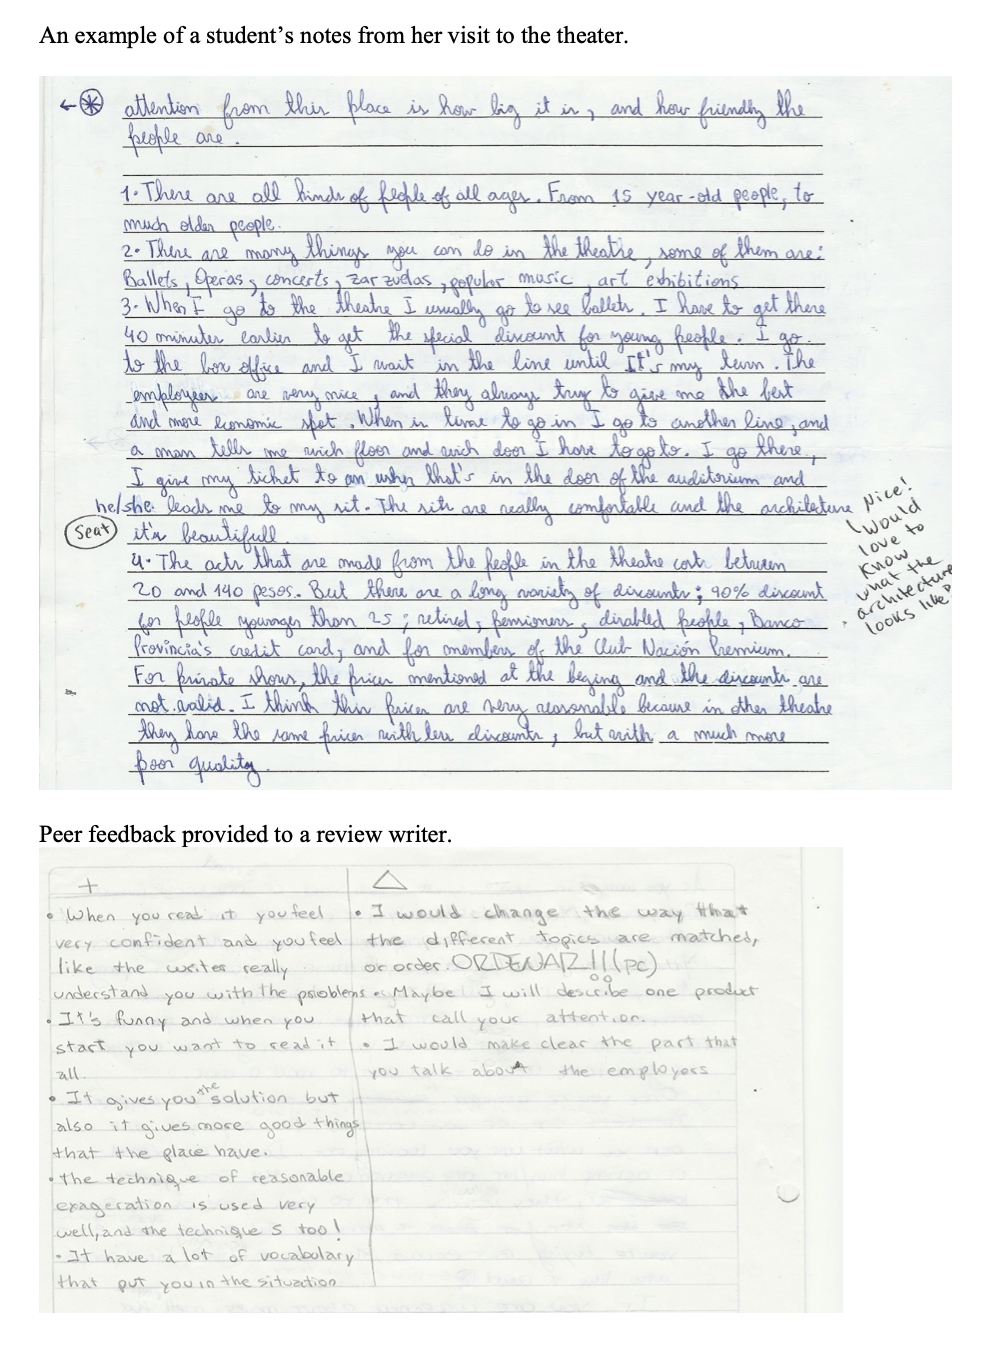 An example of a student's notes from her visit to the theater.
attention from this place is how big it is, and how friendly the
people are.
1- There are all kinds of people of all ages. From 15 year-old people, to
much older people.
2- There are many things you can do in the theatre, some of them are:
Ballets, Operas, concerts, zarzuelas, popular music, art exhibitions
3- When I go to the theatre I usually go to see ballets. I have to get there
40 minutes earlier to get the special discount for young people. I go
to the box office and I wait in the line until It's my turn. The
employees are very nice, and they always try to give me the best
and more economic spot. When is time to go in I go to another line, and
a man tells me wich floor and wich door I have to go to. I go there,
I give my ticket to an usher that's in the door of the auditorium and
he/she leads me to my sit. The sits are really comfortable and the architecture
Seat
it's beautifull.
Nice!
I would
love to
know
what the
architecture
looks like!
4- The acts that are made from the people in the theatre costs between
20 and 140 pesos. But there are a long variety of discounts; 90% discount
for people younger than 25; retired, pensioners, disabled people, Banco
Provincia's credit card, and for members of the Club Nación Premium.
For private shows, the prices mentioned at the beging and the discounts are
not valid. I think this prices are very reasonable because in other theatre
they have the same prices with less discounts, but with a much more
poor quality.
Peer feedback provided to a review writer.
+
• When you read it you feel
very confident and you feel
like the writer really
understand you with the problems
• It's funny and when you
start you want to read it
all.
• It gives you the solution but
also it gives more good things
that the place have.
• the technique of reasonable
exageration is used very
well, and the technique s too!
• It have a lot of vocabulary
that put you in the situation
△
• I would change the way that
the different topics are matched,
or order. ORDENAR!! (PC)
• Maybe I will describe one product
that call your attention.
• I would make clear the part that
you talk about the employers